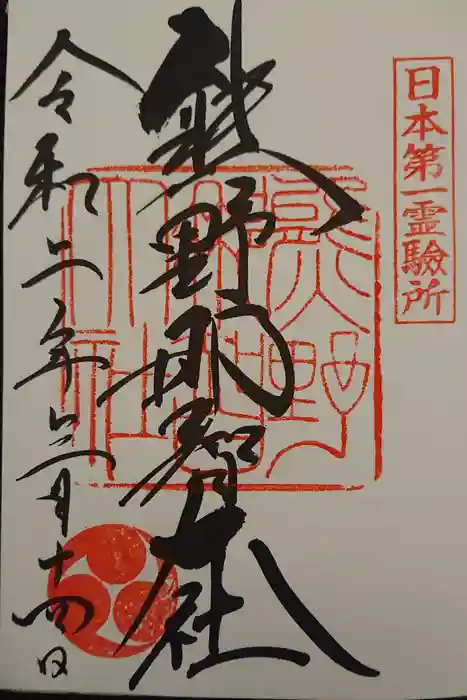 日本第一霊驗所
熊野那智大社
熊野
那智
大社
令和二年六月十四日